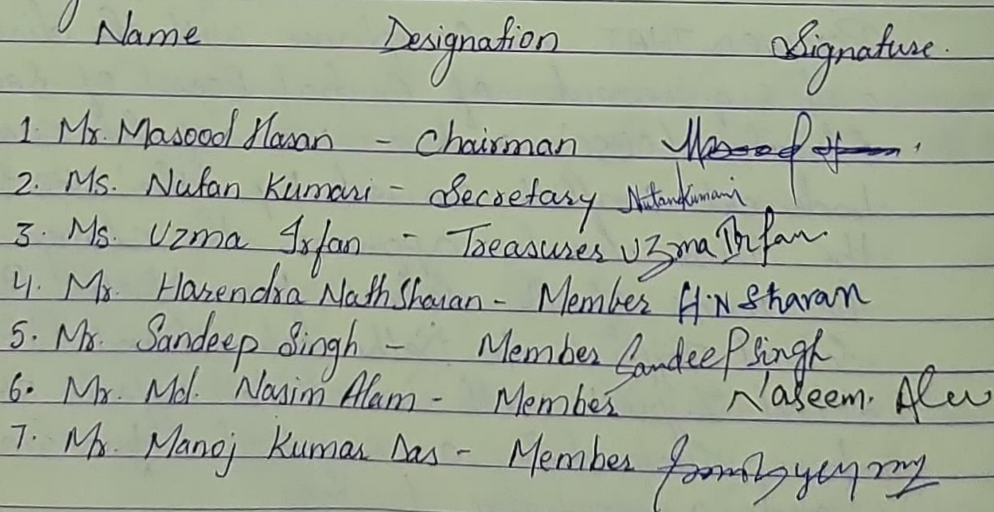 Name Designation Signature.
1. Mr. Masood Hasan - Chairman Masood
2. Ms. Nutan Kumari - Secretary Nutankumari
3. Ms. Uzma Irfan - Treasurer Uzma Irfan.
4. Mr. Harendra Nath Sharan - Member H.N Sharan
5. Mr. Sandeep Singh - Member Sandeep Singh
6. Mr. Md. Nasim Alam - Member Naseem. Alam
7. Mr. Manoj Kumar Das - Member